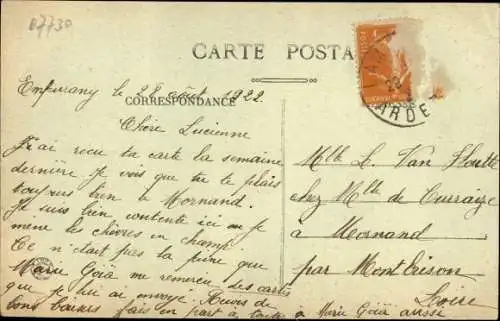 07730
CARTE POSTA
ARDE
Empurany le 28 août 1922
CORRESPONDANCE
Chère Lucienne
J'ai reçu ta carte la semaine
dernière Je vois que tu te plais
toujours bien à Mornand.
Je suis bien contente ici où je
mène les chèvres en champ.
Ce n'était pas la peine que
Marie Goïa me remercie des cartes
que je lui ai envoyé. Reçois de
bons baisers fais en part à toute à Marie Goïa aussi
Mlle L. Van
chez Mlle de Curraize
à Mornand
par Montbrison
Loire